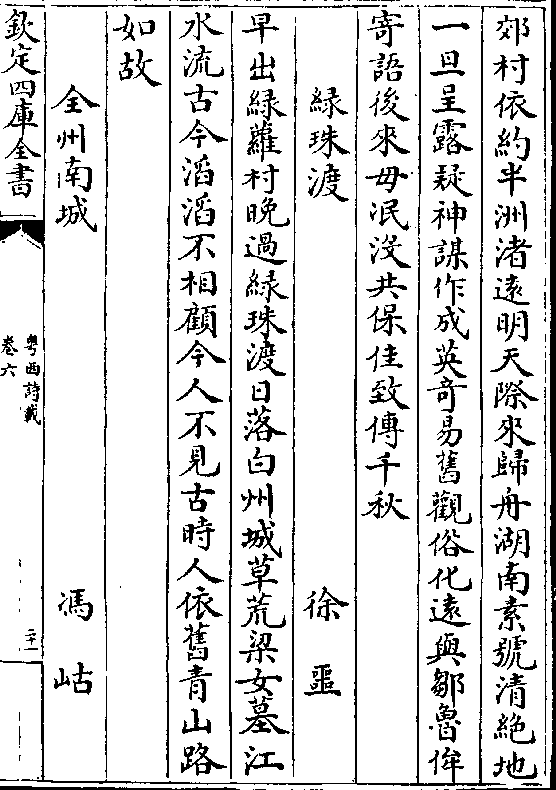 郊村依約半洲渚遠明天際來歸舟湖南素號清絶地
一旦呈露疑神謀作成英竒易舊觀俗化遠與鄒魯侔
寄語後來毋泯没共保佳致傳千秋
緑珠渡 徐噩
早出緑蘿村晚過緑珠渡日落白州城草荒梁女墓江
水流古今滔滔不相顧今人不見古時人依舊青山路
如故
全州南城 馮岵
欽定四庫全書
粤西詩載
卷六
二十一